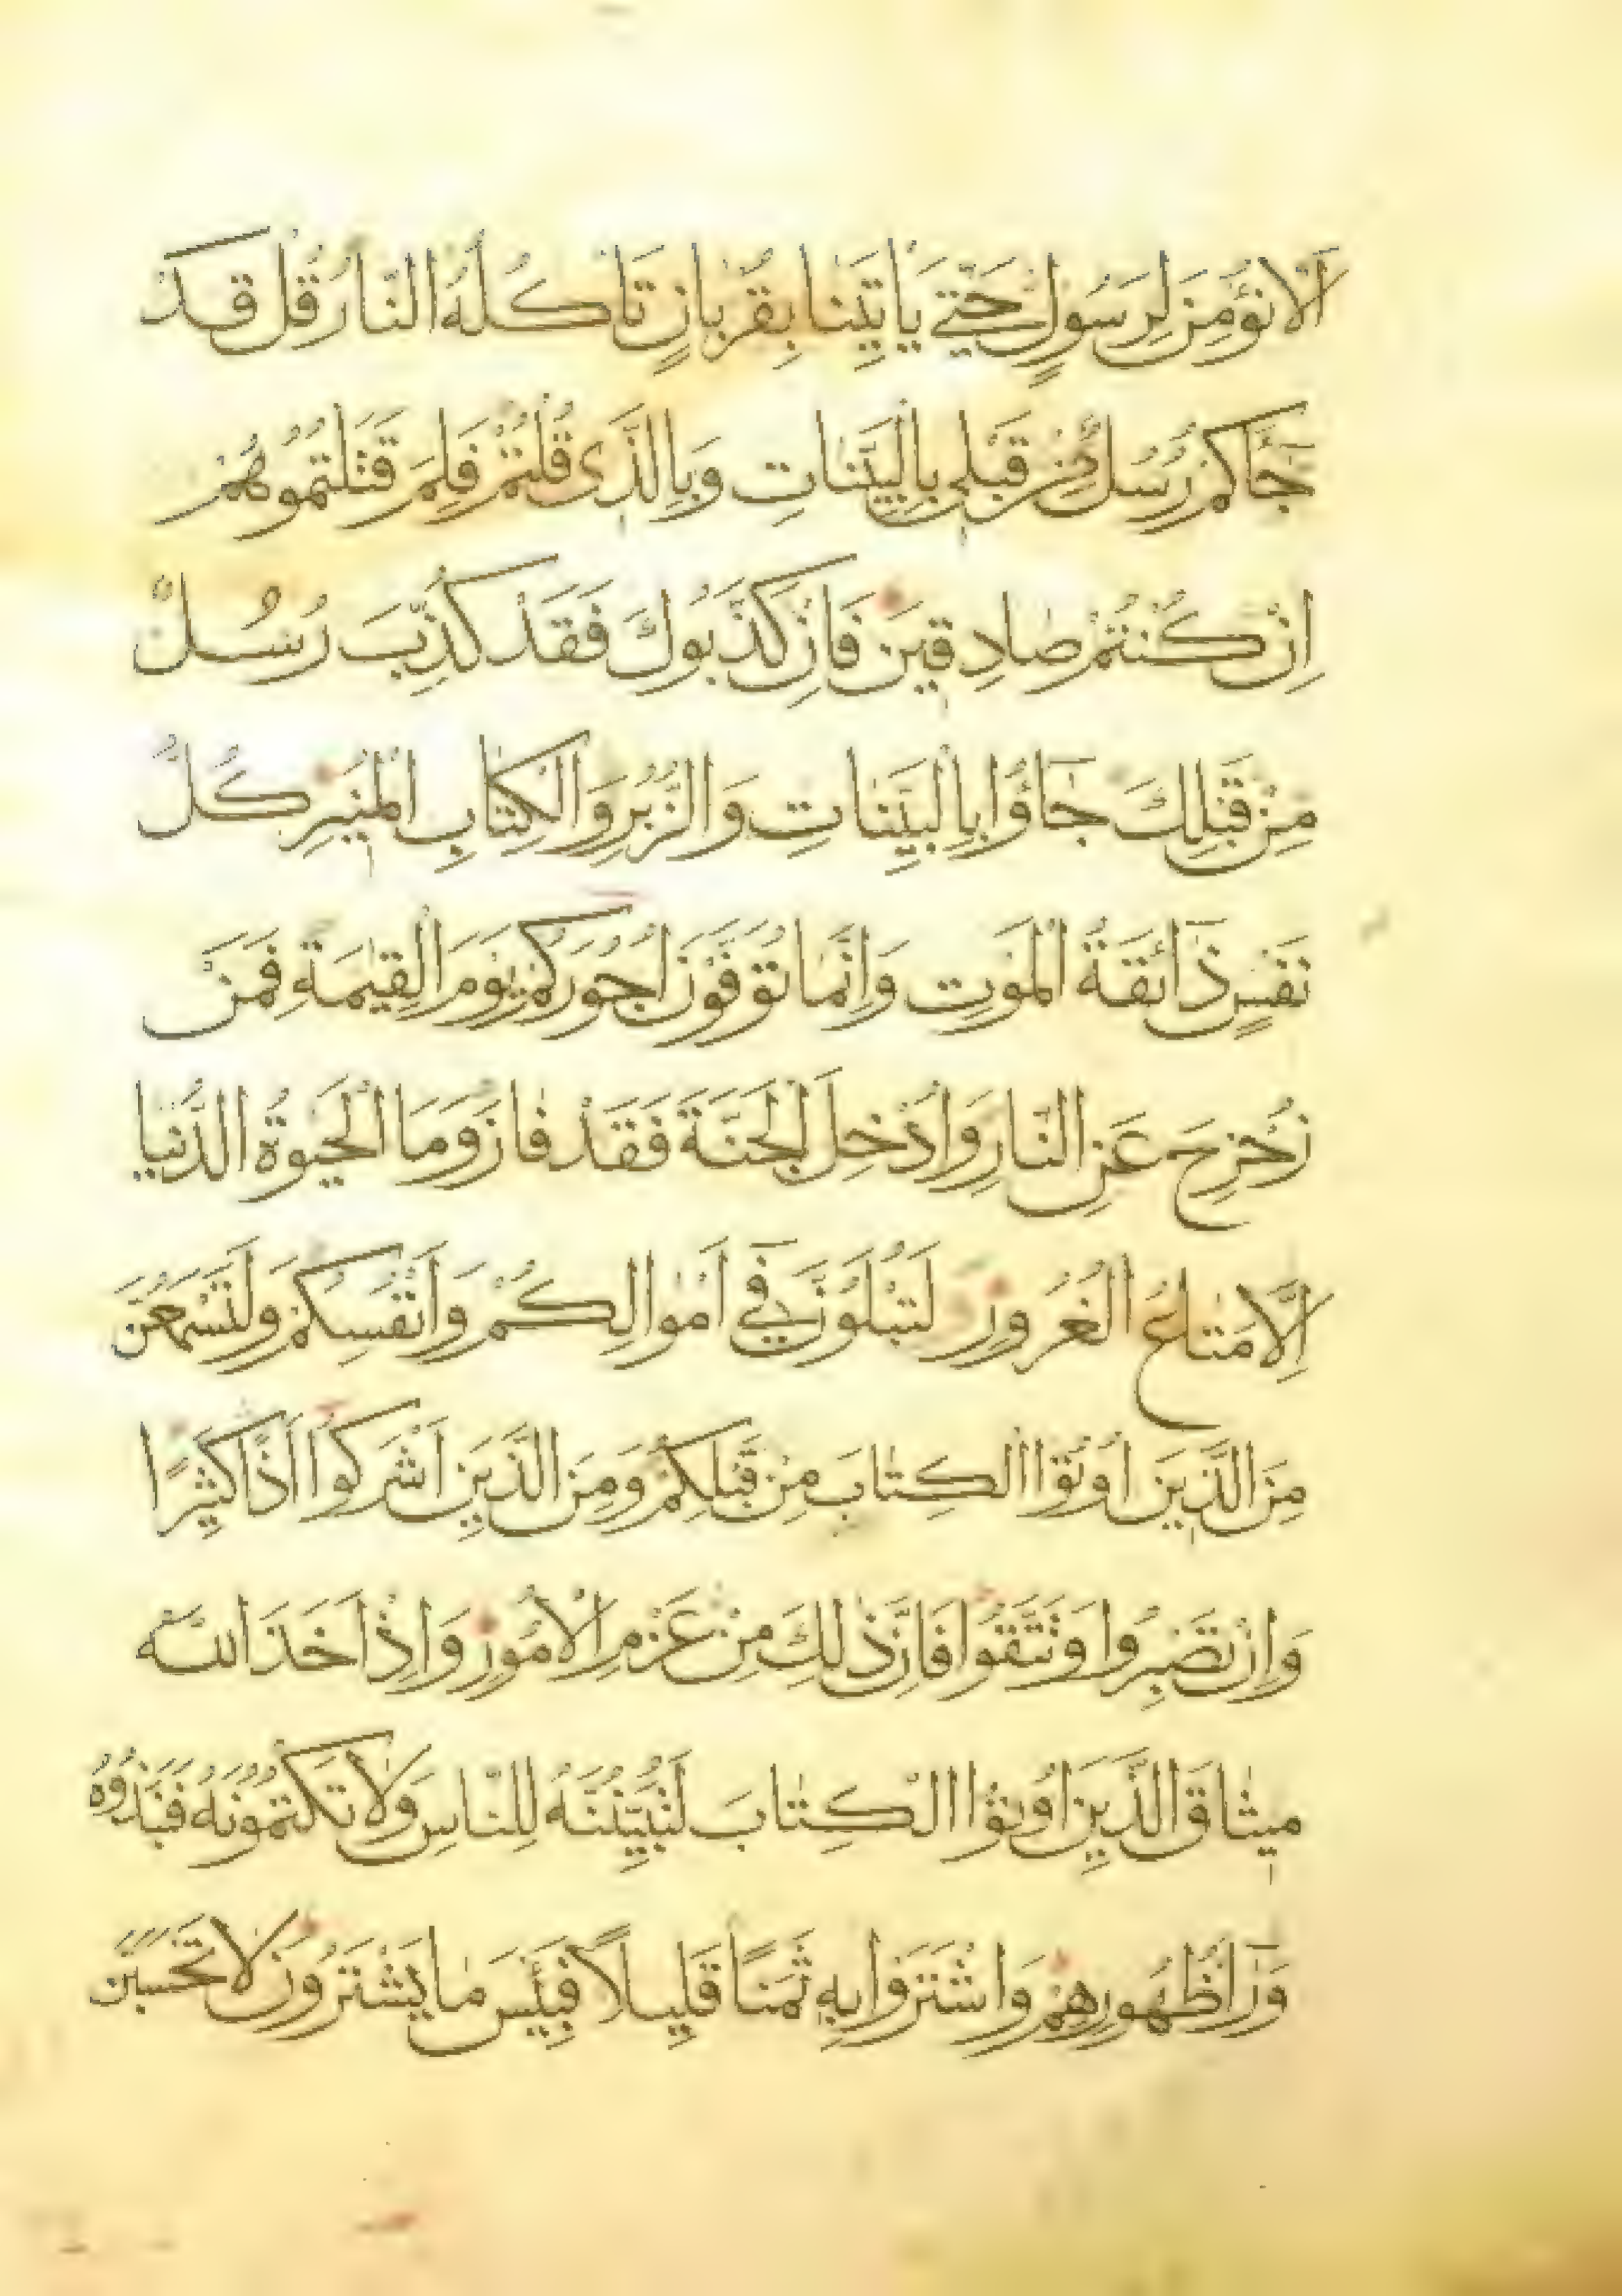 اَلَّا نُؤْمِنَ لِرَسُولٍ حَتّٰى يَأْتِيَنَا بِقُرْبَانٍ تَأْكُلُهُ النَّارُ قُلْ قَدْ
جَآءَكُمْ رُسُلٌ مِنْ قَبْلِى بِالْبَيِّنَاتِ وَبِالَّذِى قُلْتُمْ فَلِمَ قَتَلْتُمُوهُمْ
اِنْ كُنْتُمْ صَادِقِينَ فَاِنْ كَذَّبُوكَ فَقَدْ كُذِّبَ رُسُلٌ
مِنْ قَبْلِكَ جَآؤُا بِالْبَيِّنَاتِ وَالزُّبُرِ وَالْكِتَابِ الْمُنِيرِ كُلُّ
نَفْسٍ ذَآئِقَةُ الْمَوْتِ وَاِنَّمَا تُوَفَّوْنَ اُجُورَكُمْ يَوْمَ الْقِيٰمَةِ فَمَنْ
زُحْزِحَ عَنِ النَّارِ وَاُدْخِلَ الْجَنَّةَ فَقَدْ فَازَ وَمَا الْحَيٰوةُ الدُّنْيَا
اِلَّا مَتَاعُ الْغُرُورِ لَتُبْلَوُنَّ فِى اَمْوَالِكُمْ وَاَنْفُسِكُمْ وَلَتَسْمَعُنَّ
مِنَ الَّذِينَ اُوتُوا الْكِتَابَ مِنْ قَبْلِكُمْ وَمِنَ الَّذِينَ اَشْرَكُوا اَذًى كَثِيرًا
وَاِنْ تَصْبِرُوا وَتَتَّقُوا فَاِنَّ ذٰلِكَ مِنْ عَزْمِ الْاُمُورِ وَاِذْ اَخَذَ اللّٰه
مِيثَاقَ الَّذِينَ اُوتُوا الْكِتَابَ لَتُبَيِّنُنَّهُ لِلنَّاسِ وَلَا تَكْتُمُونَهُ فَنَبَذُوهُ
وَرَآءَ ظُهُورِهِمْ وَاشْتَرَوْا بِهِ ثَمَنًا قَلِيلًا فَبِئْسَ مَا يَشْتَرُونَ لَا تَحْسَبَنَّ